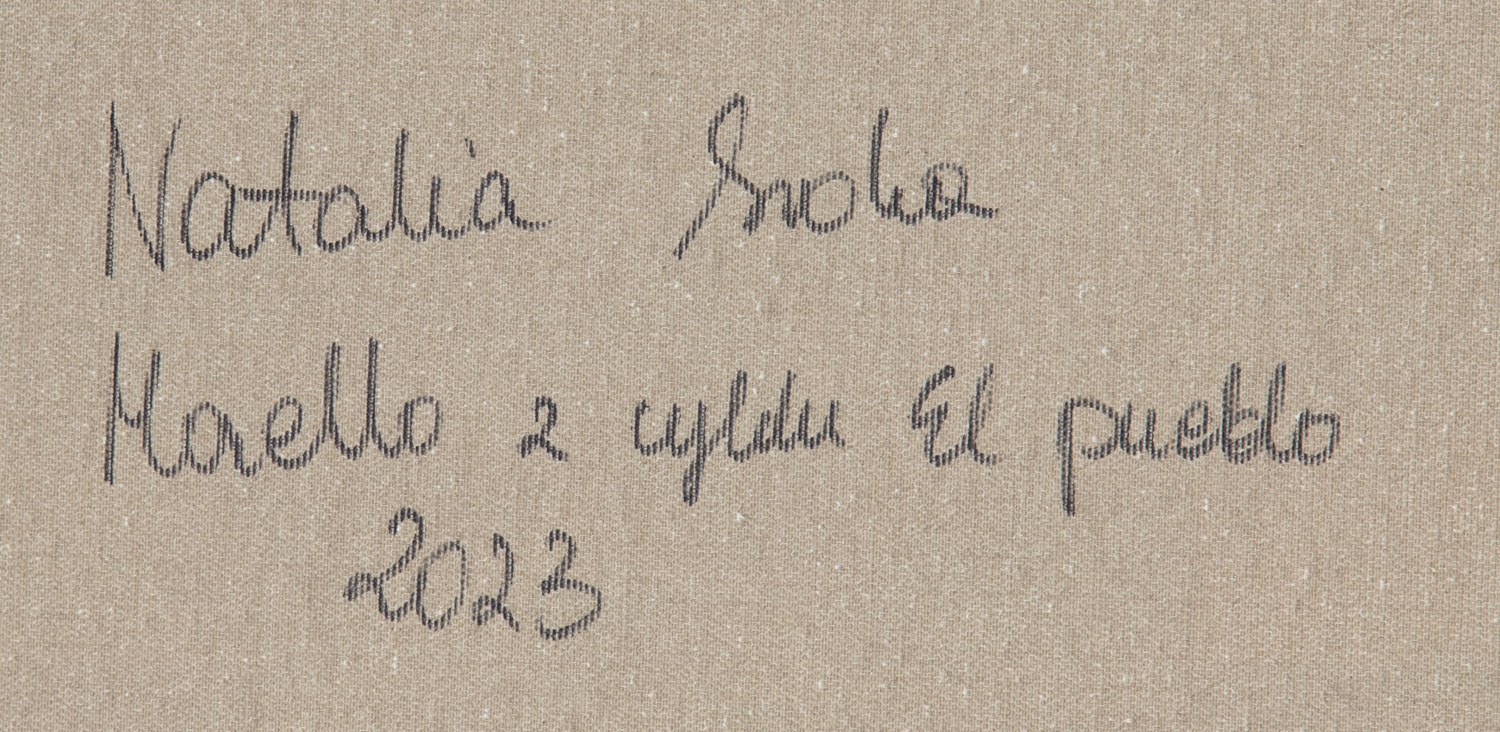 Natalia Sroka
Morello z cyklu El pueblo
2023